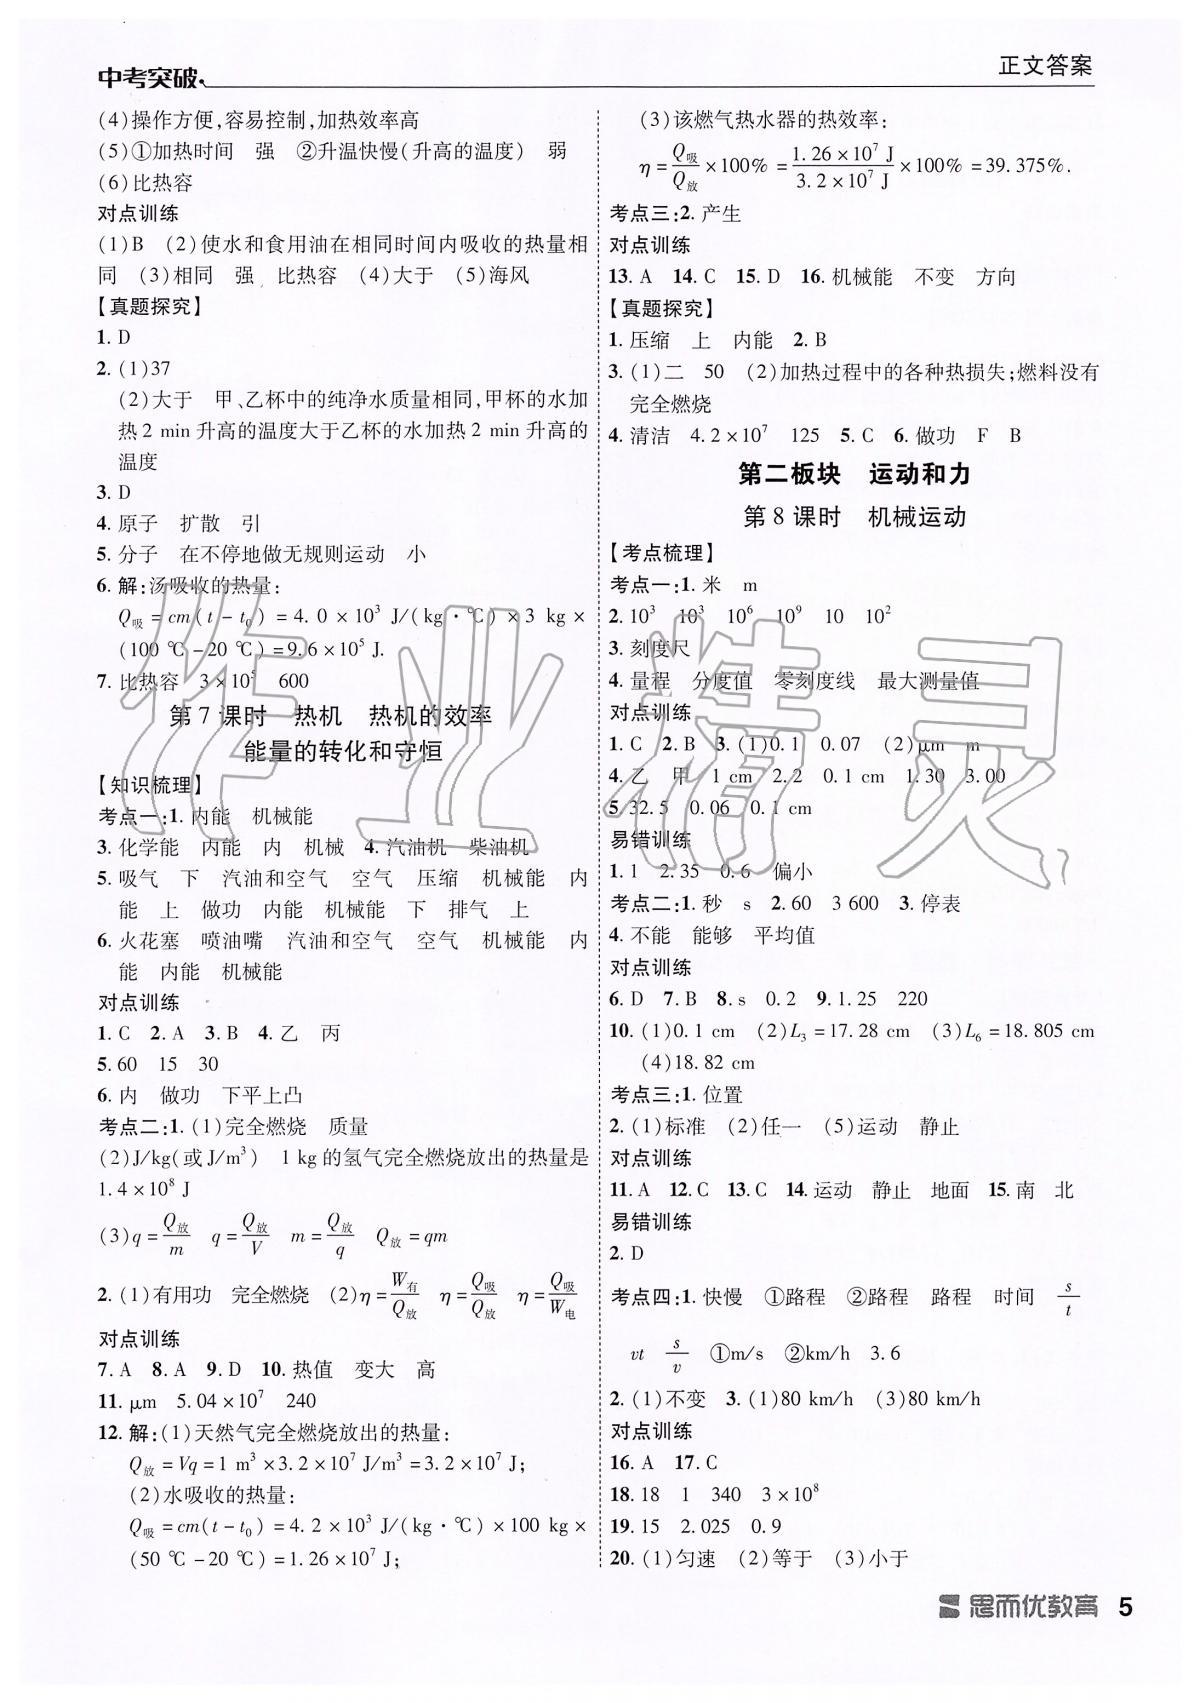 中考突破
正文答案
(4)操作方便,容易控制,加热效率高
(5)①加热时间 强 ②升温快慢(升高的温度) 弱
(6)比热容
对点训练
(1)B (2)使水和食用油在相同时间内吸收的热量相
同 (3)相同 强 比热容 (4)大于 (5)海风
【真题探究】
1. D
2. (1)37
(2)大于 甲、乙杯中的纯净水质量相同,甲杯的水加
热2 min升高的温度大于乙杯的水加热2 min升高的
温度
3. D
4. 原子 扩散 引
5. 分子 在不停地做无规则运动 小
6. 解:汤吸收的热量:
Q吸=cm(t-t₀)=4.0×10³ J/(kg·℃)×3 kg×
(100 ℃-20 ℃)=9.6×10⁵ J.
7. 比热容 3×10⁵ 600
第7课时 热机 热机的效率
能量的转化和守恒
【知识梳理】
考点一:1. 内能 机械能
3. 化学能 内能 内 机械 4. 汽油机 柴油机
5. 吸气 下 汽油和空气 空气 压缩 机械能 内
能 上 做功 内能 机械能 下 排气 上
6. 火花塞 喷油嘴 汽油和空气 空气 机械能 内
能 内能 机械能
对点训练
1. C 2. A 3. B 4. 乙 丙
5. 60 15 30
6. 内 做功 下平上凸
考点二:1. (1)完全燃烧 质量
(2)J/kg(或J/m³) 1 kg的氢气完全燃烧放出的热量是
1.4×10⁸ J
(3)q=Q放/m q=Q放/V m=Q放/q Q放=qm
2. (1)有用功 完全燃烧 (2)η=W有/Q放 η=Q吸/Q放 η=Q吸/W电
对点训练
7. A 8. A 9. D 10. 热值 变大 高
11. μm 5.04×10⁷ 240
12. 解:(1)天然气完全燃烧放出的热量:
Q放=Vq=1 m³×3.2×10⁷ J/m³=3.2×10⁷ J;
(2)水吸收的热量:
Q吸=cm(t-t₀)=4.2×10³ J/(kg·℃)×100 kg×
(50 ℃-20 ℃)=1.26×10⁷ J;
(3)该燃气热水器的热效率:
η=Q吸/Q放×100%=1.26×10⁷ J/3.2×10⁷ J×100%=39.375%.
考点三:2. 产生
对点训练
13. A 14. C 15. D 16. 机械能 不变 方向
【真题探究】
1. 压缩 上 内能 2. B
3. (1)二 50 (2)加热过程中的各种热损失;燃料没有
完全燃烧
4. 清洁 4.2×10⁷ 125 5. C 6. 做功 F B
第二板块 运动和力
第8课时 机械运动
【考点梳理】
考点一:1. 米 m
2. 10³ 10³ 10⁶ 10⁹ 10 10²
3. 刻度尺
4. 量程 分度值 零刻度线 最大测量值
对点训练
1. C 2. B 3. (1)0.1 0.07 (2)μm m
4. 乙 甲 1 cm 2.2 0.1 cm 1.30 3.00
5 32.5 0.06 0.1 cm
易错训练
1. 1 2.35 0.6 偏小
考点二:1. 秒 s 2. 60 3 600 3. 停表
4. 不能 能够 平均值
对点训练
6. D 7. B 8. s 0.2 9. 1.25 220
10. (1)0.1 cm (2)L₃=17.28 cm (3)L₆=18.805 cm
(4)18.82 cm
考点三:1. 位置
2. (1)标准 (2)任一 (5)运动 静止
对点训练
11. A 12. C 13. C 14. 运动 静止 地面 15. 南 北
易错训练
2. D
考点四:1. 快慢 ①路程 ②路程 路程 时间 s/t
vt s/v ①m/s ②km/h 3.6
2. (1)不变 3. (1)80 km/h (3)80 km/h
对点训练
16. A 17. C
18. 18 1 340 3×10⁸
19. 15 2.025 0.9
20. (1)匀速 (2)等于 (3)小于
作业精灵
思而优教育 5